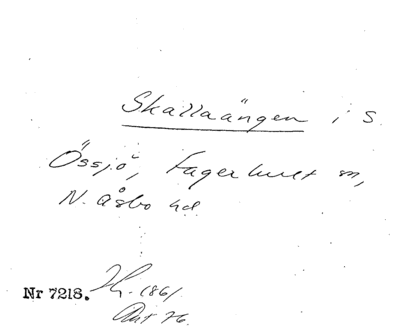 Skallaängen i S.
Össjö, Fagerhult m,
N. Åsbo hd
Nr 7218. 1861